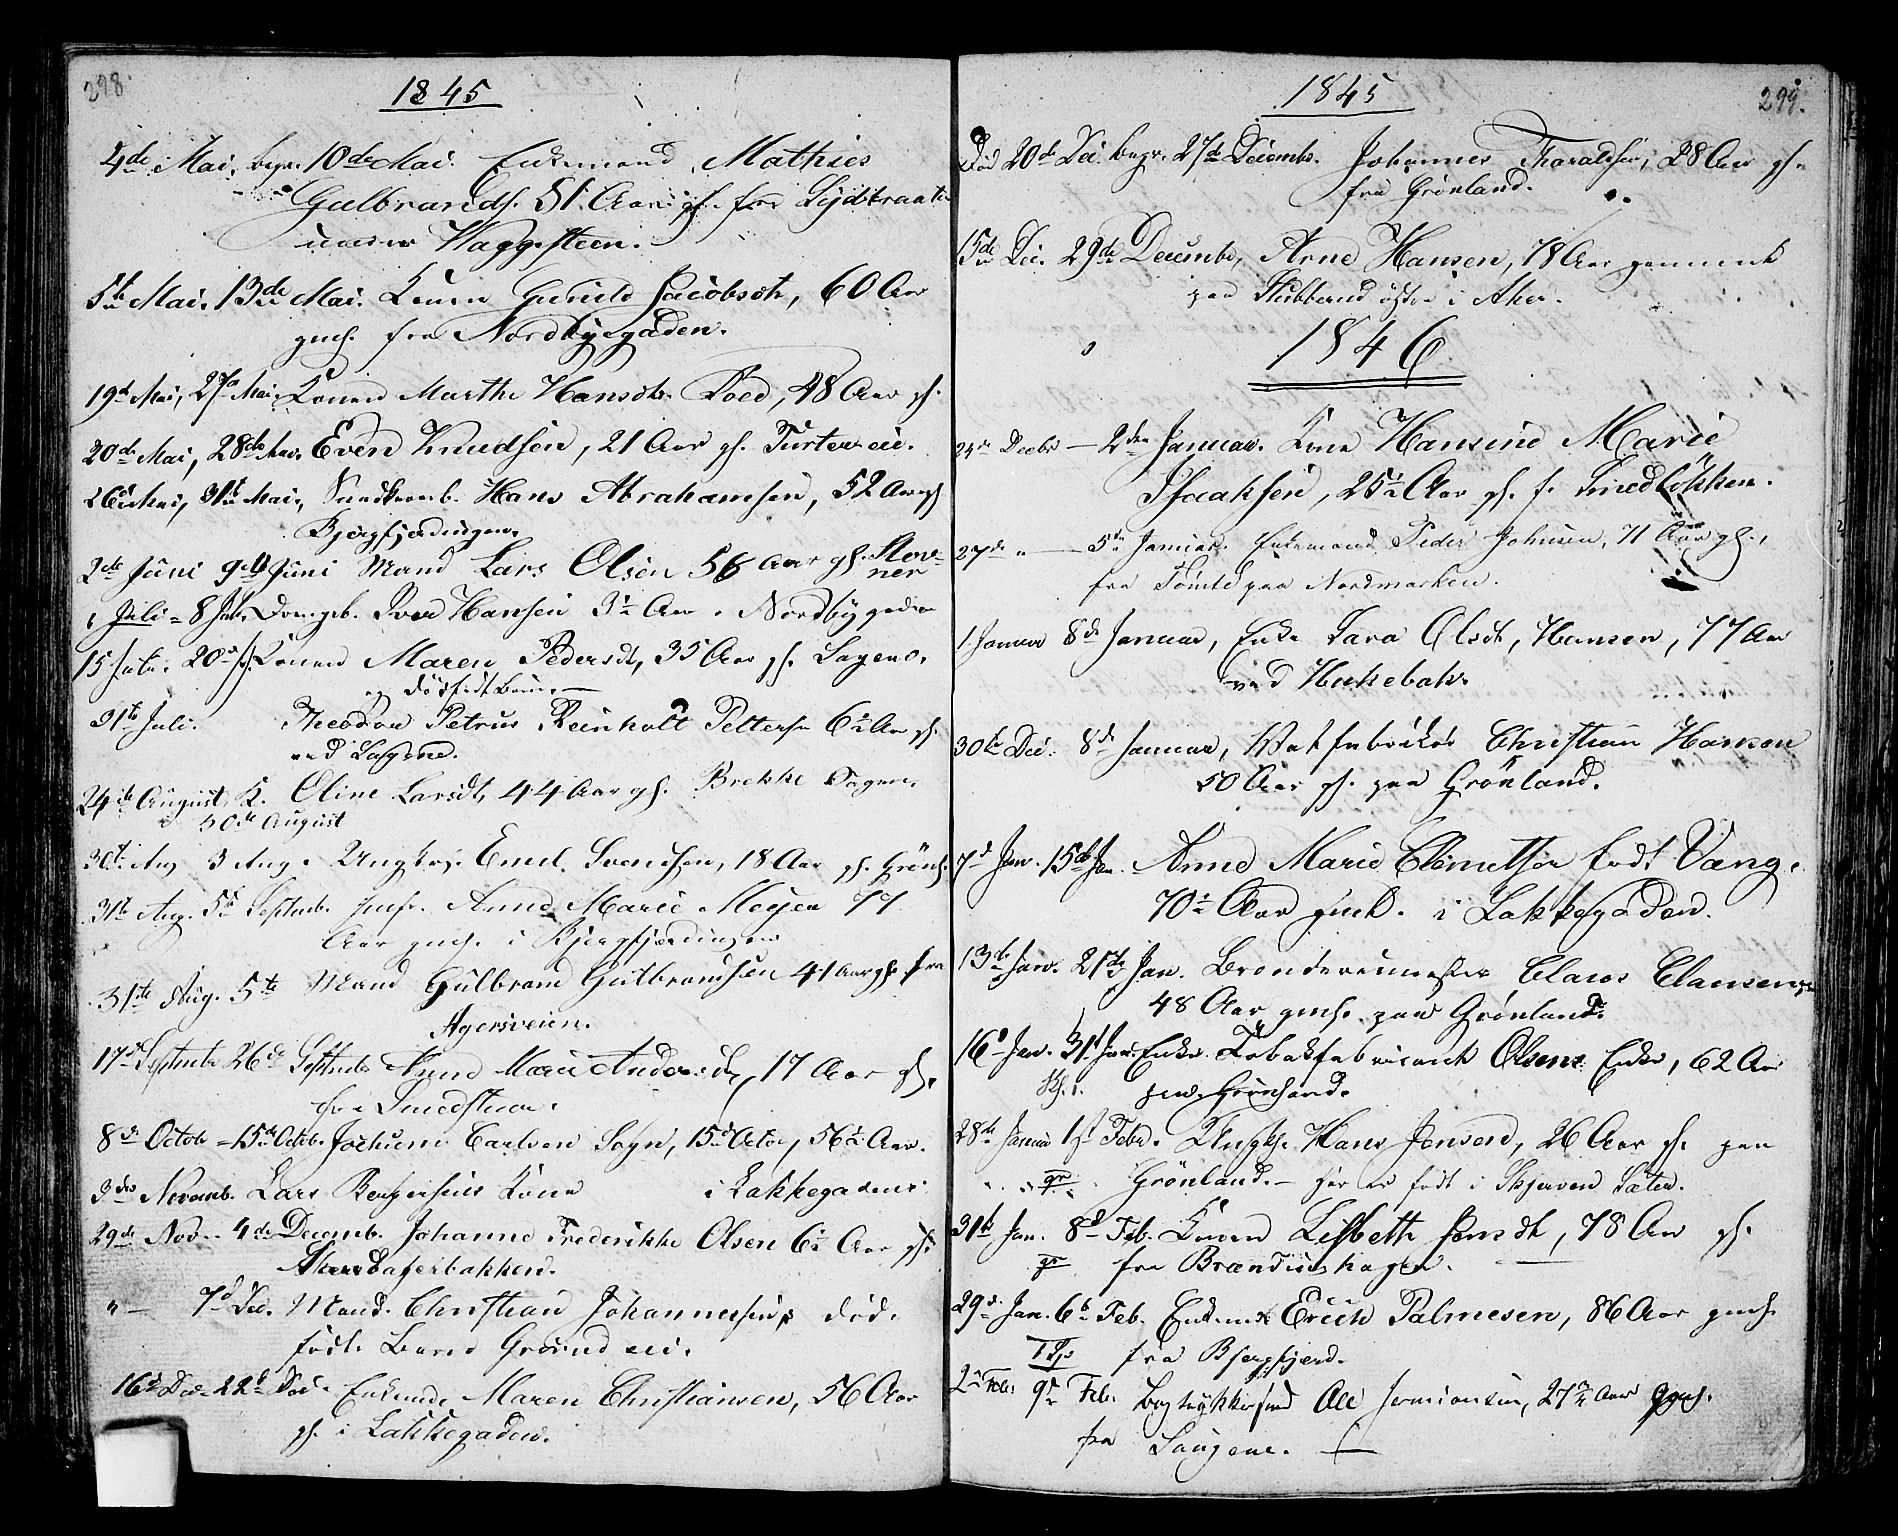 298.
1845
4de Mai, begr. 10de Mai. Enkemand Mathies
Gulbrands. 51 Aar gh. fra
under Waggesteen.
5te Mai. 13de Mai. Konen Gunild Jacobsdtr, 60 Aar
gmh. fra Nordbygaden.
19de Mai, 27de Mai, Konen Marthe Hansdtr. Roed, 48 Aar gh.
20de Mai, 28de Mai. Even Knudsen, 21 Aar gh. Turter eie.
26de Mai, 31te Mai, Hans Abrahamsen, 52 Aar gh
Bjergfjerdingen.
2de Juni 9de Juni Mand Lars Olsen 56 Aar gh. Stov-
ner
1 Juli = 8 Juli. Drengeb. Iver Hansen 3½ Aar. Nordbygaden
15 Juli. 20de Konen Maren Pedersdtr, 35 Aar gh. Sagene.
og dødfødt Barn. —
31te Juli. Theodor Petrus Reinholt Pettersen 6½ Aar gh.
ved Sagene.
24de August, K. Oline Larsdtr, 44 Aar gh. Brekke Sagen.
30de August
30te Aug 3 Aug. Ungkrl. Emil Svendsen, 18 Aar gh. Grønl.
31te Aug. 5te Septemb. Jmfr. Anne Marie Meyer 77
Aar gmh. i Bjergfjerdingen
31te Aug. 5te Mand Gulbrand Gulbrandsen 41 Aar gh. fra
Agersveien.
17de Septembr 26de Septembr Anne Marie Andersdtr, 17 Aar gh.
fra Smedstuen.
8de Octob = 15de Octob. Jochum Carlsen Sogn, 15de Octob, 56½ Aar.
3die Novemb. Lars Kone i Lakkegaden.
29de Nov. 4de Decemb. Johanne Frederikke Olsen 6½ Aar gh.
Skandsferbakken.
" — 7de Dec. Mand. Christian Johannesens død-
født Barn Grønud eie.
16de Dec. 22de Dec. Enkemd Maren Christiansen, 56 Aar
gh. i Lakkegaden.
299.
1845
Død 20de Dec. begr. 27de Decembr. Johannes Tharaldsen, 28 Aar gh.
fra Grønland.
15de Dec. 29de Decembr, Arne Hansen, 78 Aar gammel
paa Stubberud østre i Aker.
1846
24de Decbr — 2den Januar. Kone Hansine Marie
Isaaksen, 25½ Aar gh. f. Smedløkken.
27de " — 5te Januar. Enkemand Peder Johnsen, 71 Aar gh.,
fra Tømte paa Nordmarken.
1 Januar 8de Januar, Enke Sara Olsdt, Hansen, 77 Aar
ved Hukebak.
30te Dec. 8de Januar, Vatfabrikør Christian Hansen
50 Aar gh. paa Grønland.
7de Jan. 15de Jan. Anne Marie Clemetsen født Vang.
70½ Aar gmh. i Lakkegaden.
13de Jan. 21de Jan. Brøndevimester Claus Clausen
48 Aar gmh. paa Grønland.
16de Jan. 31te Jan. Enke. Tobakfabricant Olsens Enke, 62 Aar
paa Grønland.
28de Januar 1ste Febr. Ungk. Hans Jensen, 26 Aar gh. paa
gr Grønland. — han er født i Skjerven Sæter.
31te Jan. 8de Feb. Konen Lisbeth Jensdt, 78 Aar gh.
gr fra Brændviinshagen.
29de Jan. 6te Feb. Enkem. Erich Palmesen, 86 Aar gmh.
fra Bjergfjerd.
2de Feb. 9de Feb. Bogtrykkersvend Ole 27¾ Aar gmh.
fra Saugene.